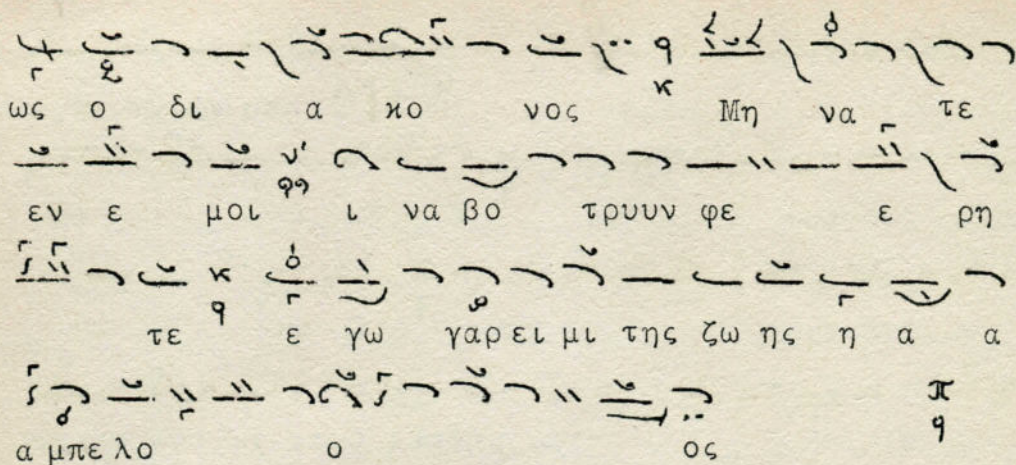 ως ο δι α κο νος Μη να τε
εν ε μοι ι να βο τρυυν φε ε ρη
τε ε γω γαρ ει μι της ζω ης η α α
α μπε λο ο ος